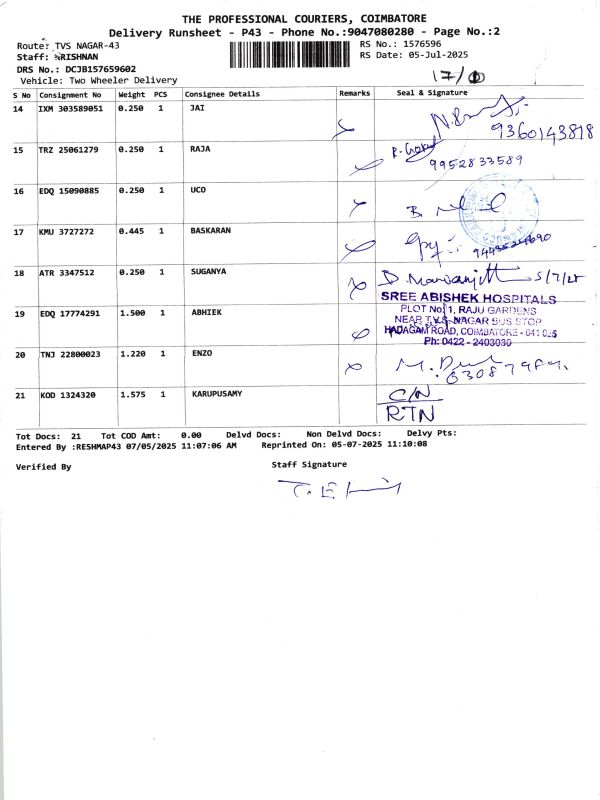 THE PROFESSIONAL COURIERS, COIMBATORE
Delivery Runsheet - P43 - Phone No.:9047080280 - Page No.:2
Route: TVS NAGAR-43 RS No.: 1576596
Staff: KRISHNAN RS Date: 05-Jul-2025
DRS No.: DCJB157659602
Vehicle: Two Wheeler Delivery
S No Consignment No Weight PCS Consignee Details Remarks Seal & Signature
14 IXM 303589051 0.250 1 JAI
9360143818
15 TRZ 25061279 0.250 1 RAJA
9952833589
16 EDQ 15090885 0.250 1 UCO
17 KMU 3727272 0.445 1 BASKARAN
18 ATR 3347512 0.250 1 SUGANYA
5/7/25
SREE ABISHEK HOSPITALS
PLOT No: 1, RAJU GARDENS
19 EDQ 17774291 1.500 1 ABHIEK NEAR T.V.S. NAGAR BUS STOP
ROAD, COIMBATORE - 641 025
Ph: 0422 - 2403030
20 TNJ 22800023 1.220 1 ENZO
21 KOD 1324320 1.575 1 KARUPUSAMY C/N
RTN
Tot Docs: 21 Tot COD Amt: 0.00 Delvd Docs: Non Delvd Docs: Delvy Pts:
Entered By :RESHMAP43 07/05/2025 11:07:06 AM Reprinted On: 05-07-2025 11:10:08
Verified By Staff Signature